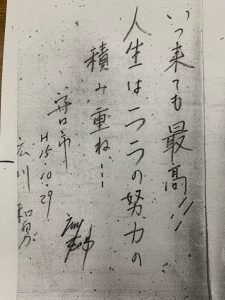 いつ来ても最高!!
人生は一つ一つの努力の
積み重ね…
守口市
H15.10.29
広川